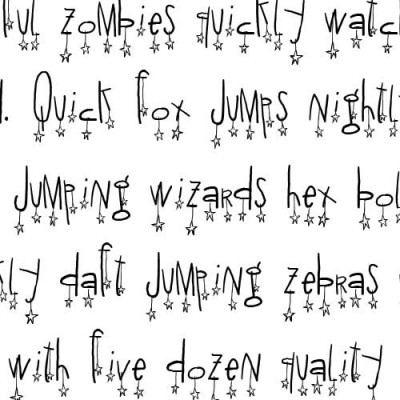 ful zombies quickly watch
d. Quick fox jumps nightly
jumping wizards hex bol
kly daft jumping zebras
with five dozen quality